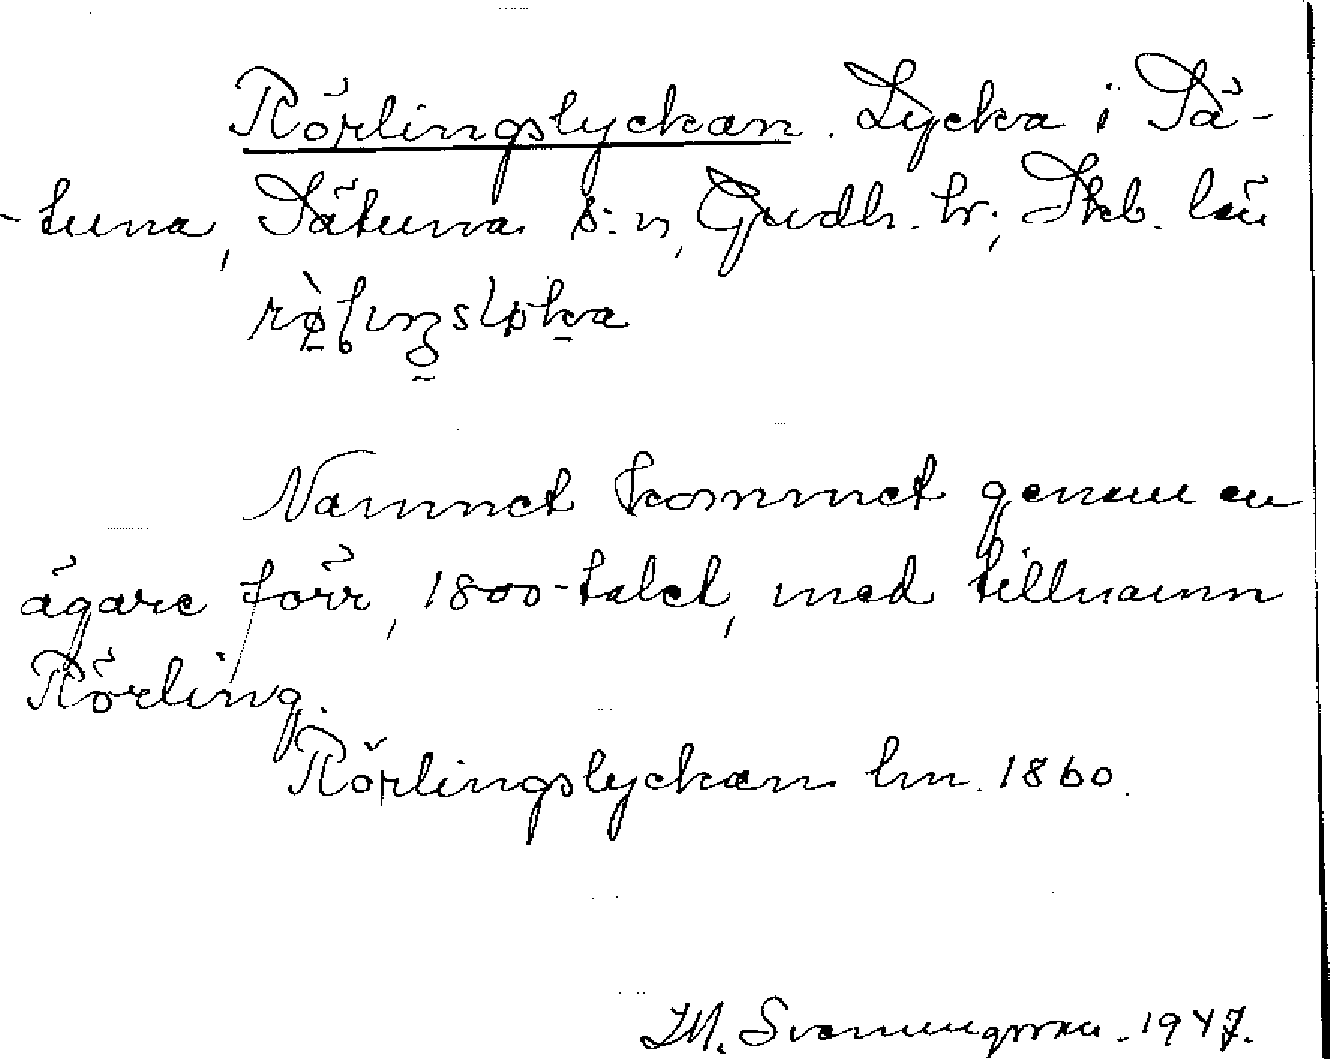 Rörlingslyckan. Lycka i Sä-
-tuna, Sätuna s:n, Gudh. hr; Skb. län
Namnet kommet genom en
ägare förr, 1800-talet, med tillnamn
Rörling.
Rörlingslyckan hm. 1860.
M. Svenningsson. 1947.